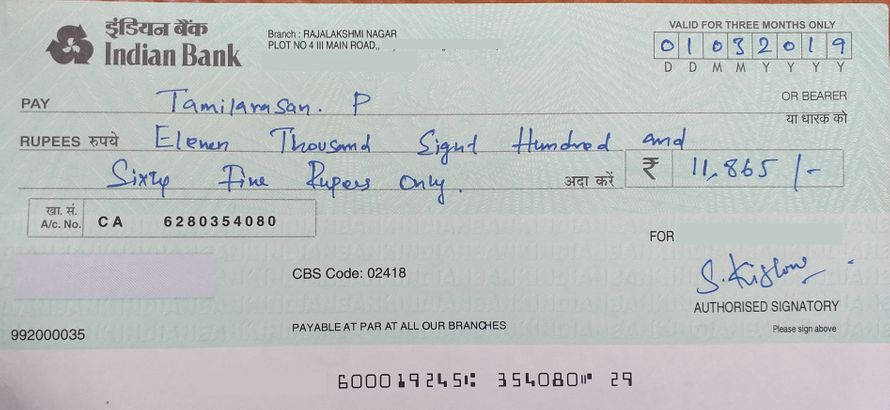 इंडियन बैंक
Indian Bank
Branch : RAJALAKSHMI NAGAR
PLOT NO 4 III MAIN ROAD,
VALID FOR THREE MONTHS ONLY
0 1 0 3 2 0 1 9
D D M M Y Y Y Y
PAY Tamilarasan. P OR BEARER
या धारक को
RUPEES रुपये Eleven Thousand Eight Hundred and
Sixty Five Rupees Only. अदा करें ₹ 11,865/-
खा. सं.
A/c. No. CA 6280354080
FOR
CBS Code: 02418
S. Kishore
AUTHORISED SIGNATORY
Please sign above
PAYABLE AT PAR AT ALL OUR BRANCHES
992000035
600019245⑆ 354080⑈ 29